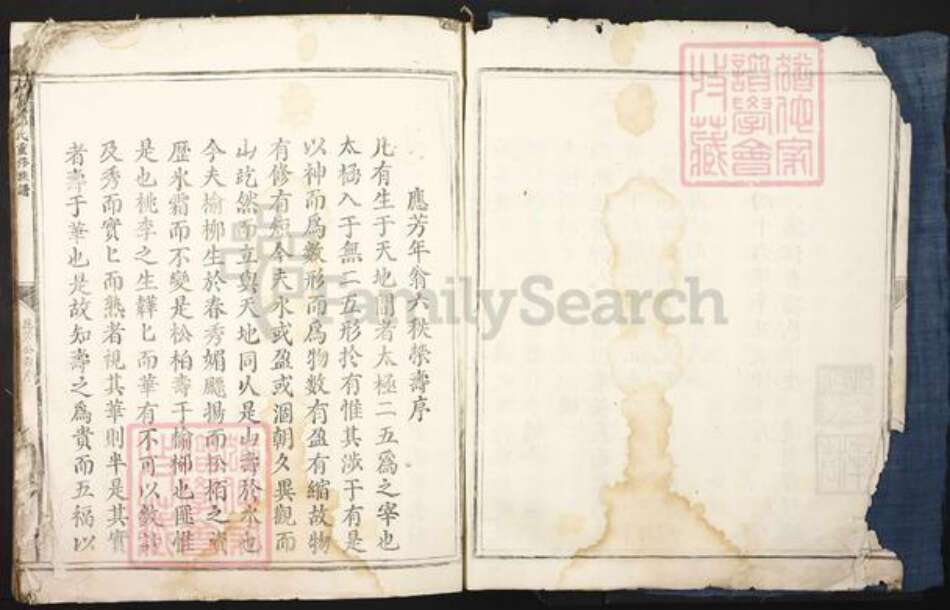 應芳年翁六秩榮壽序
凡有生于天地間者太極二五爲之宰也
太極入于無二五形於有惟其涉于有是
以神而爲數形而爲物數有盈有縮故物
有修有短今夫水或盈或涸朝久異觀而
山屹然而立與天地同久是山壽於水也
今夫榆柳生於春秀媚飈揚而松栢之
歷氷霜而不變是松柏壽于榆柳也匪惟
是也桃李之生韡匕而華有不可以數計
及秀而實匕而熟者視其華則半是其實
者壽于華也是故知壽之爲貴而五福以
氏重修族譜
猶他家
譜學會
收藏
FamilySearch